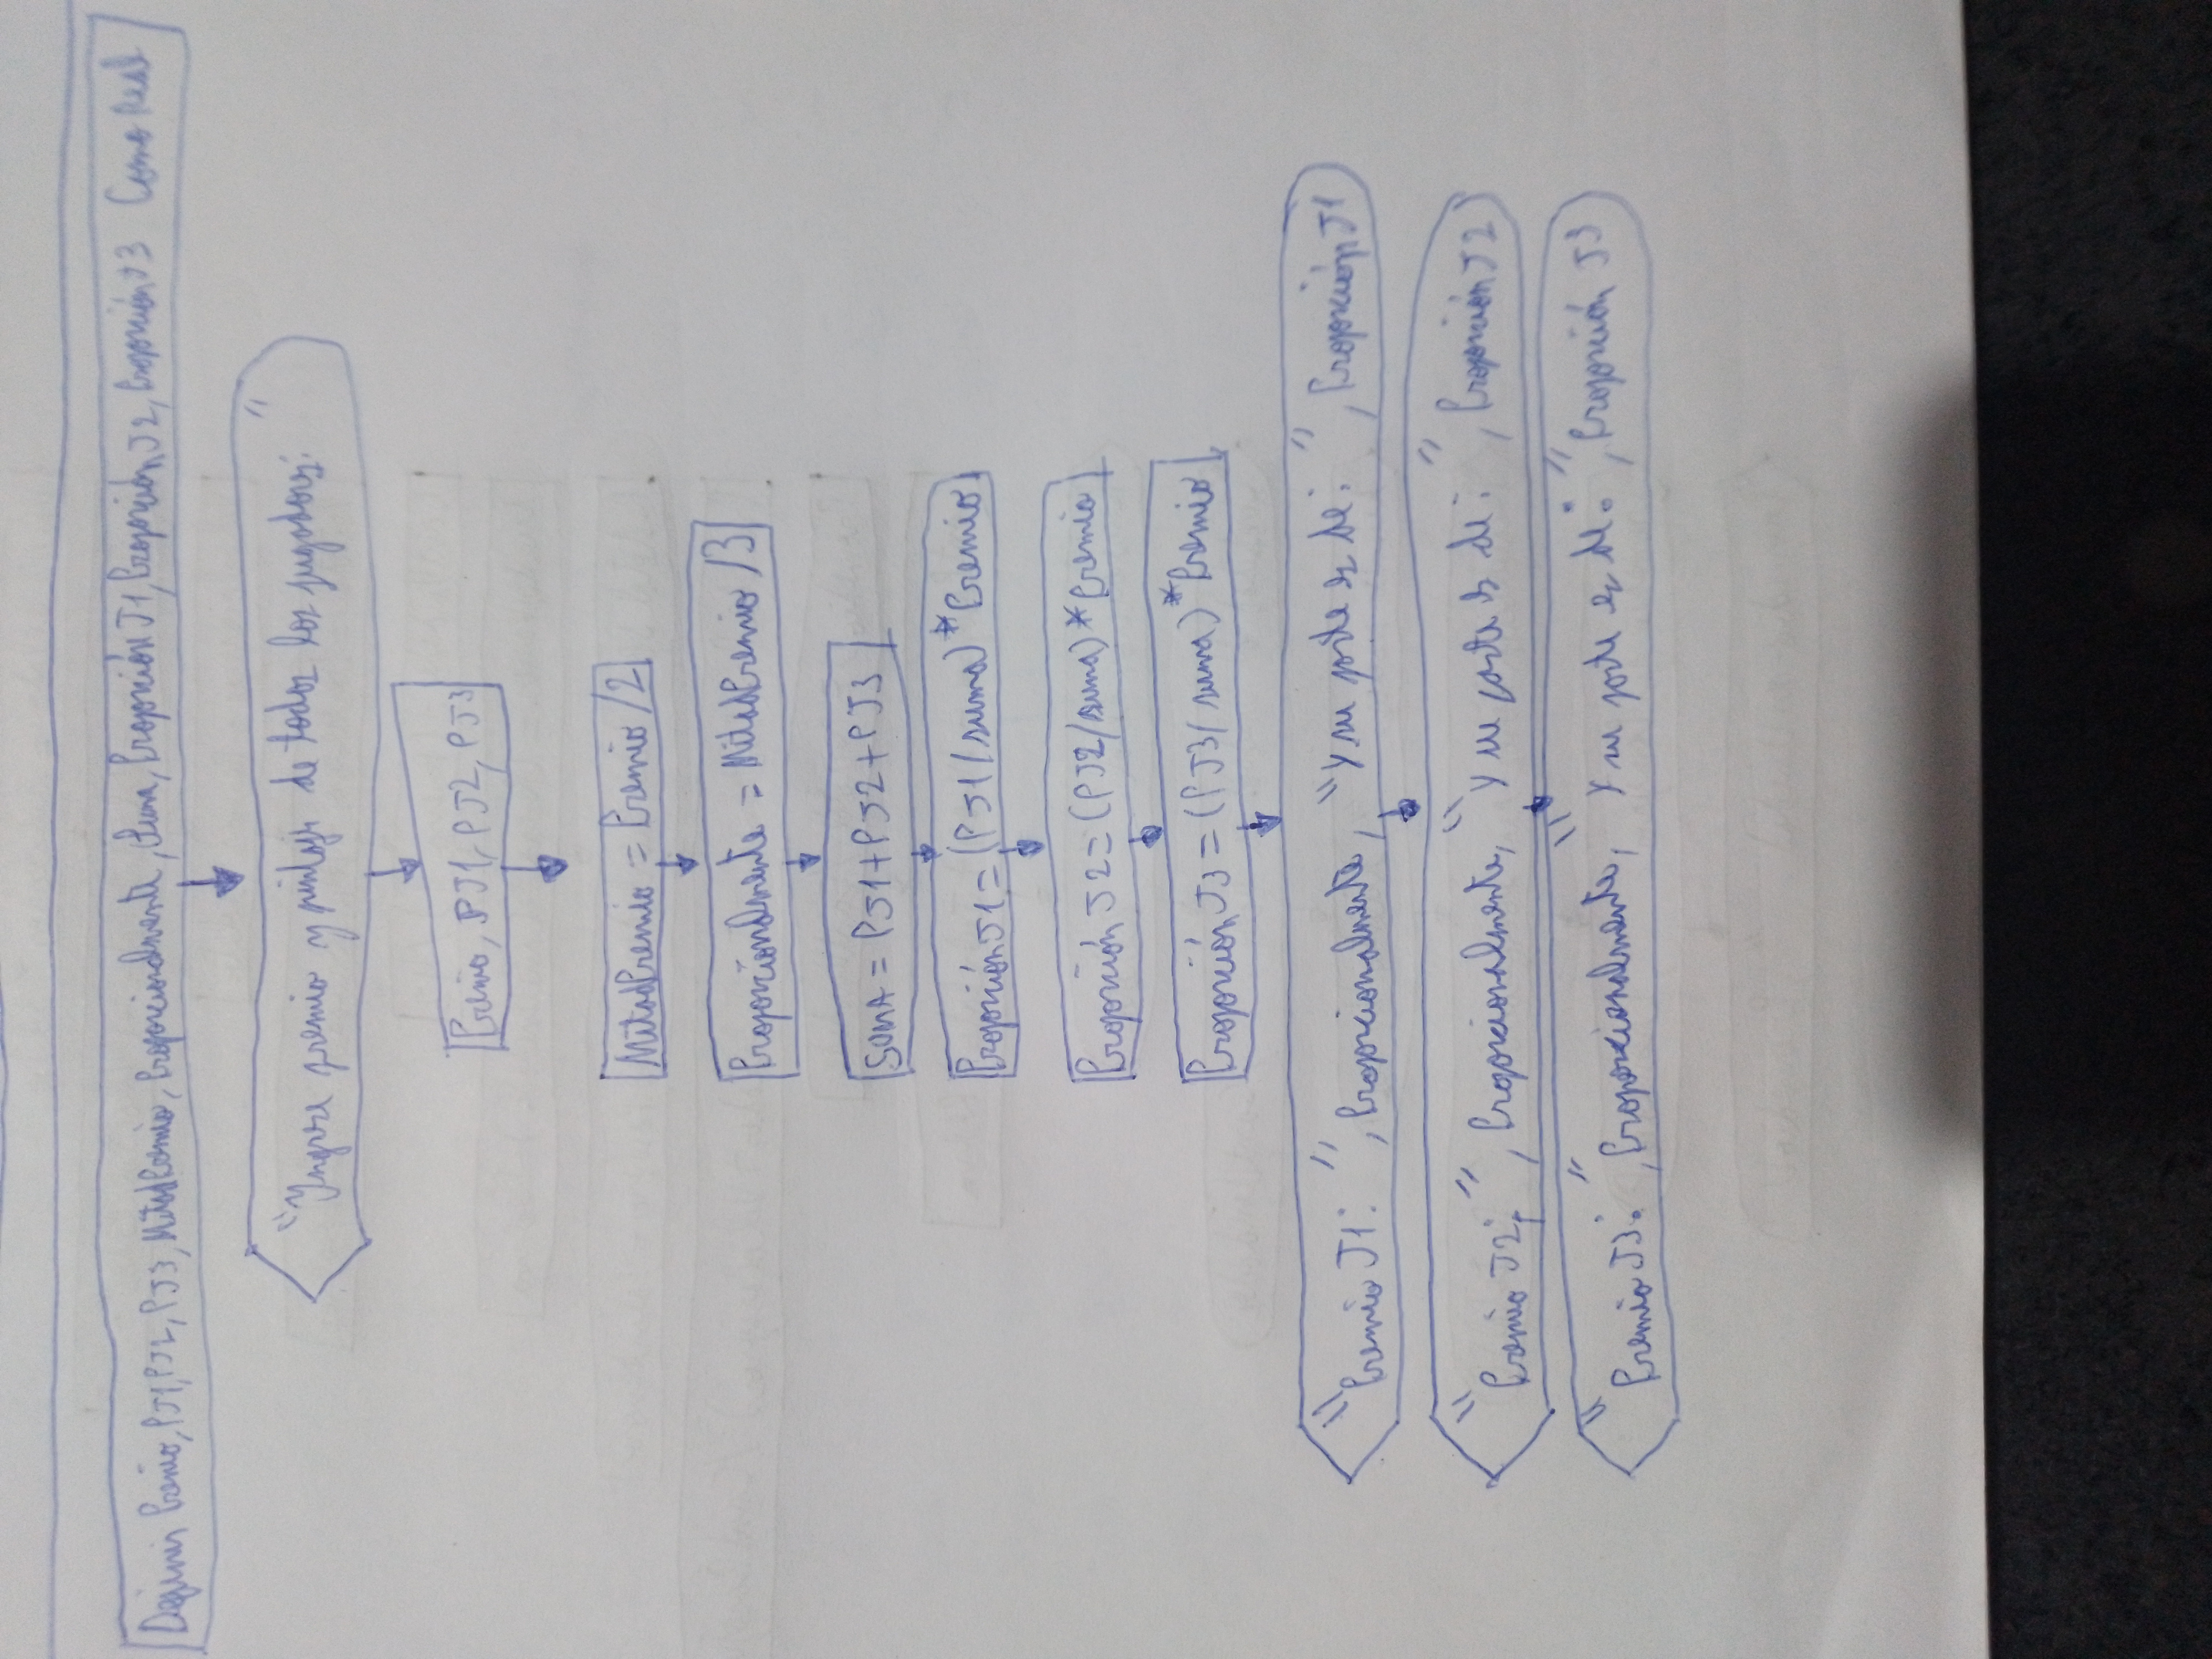 Definir Premio, PJ1, PJ2, PJ3, MitadPremio, Proporcionalmente, Suma, Proporción J1, Proporción J2, Proporción J3 Como Real
"Yngrese premio y puntaje de todos los jugadores: "
Premio, PJ1, PJ2, PJ3
MitadPremio = Premio /2
Proporcionalmente = MitadPremio /3
SUMA = PJ1+PJ2+PJ3
Proporción J1 = (PJ1/suma) * Premio
Proporción J2 = (PJ2/suma) * Premio
Proporción J3 = (PJ3/suma) * Premio
"Premio J1: ", Proporcionalmente, "Y su parte es de: ", Proporción J1
"Premio J2: ", Proporcionalmente, "Y su parte es de: ", Proporción J2
"Premio J3: ", Proporcionalmente, "Y su parte es de: ", Proporción J3